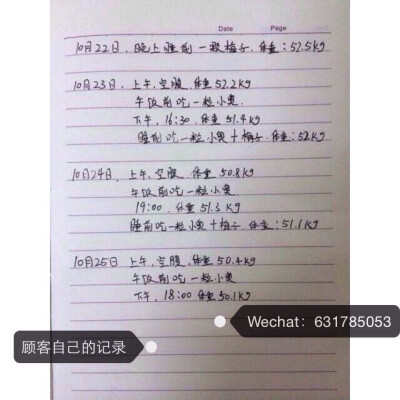 Date
Page
10月22日，晚上睡前一颗梅子，体重：52.5kg
10月23日，上午，空腹，体重52.2kg
午饭前吃一粒小奥.
下午，16:30，体重51.4kg
睡前吃一粒小奥+梅子，体重：52kg
10月24日，上午，空腹，体重50.8kg
午饭前吃一粒小奥
19:00，体重51.3kg
睡前吃一粒小奥+梅子，体重：51.1kg
10月25日 上午，空腹，体重50.4kg
午饭前吃一粒小奥
下午，18:00 体重50.1kg
Wechat：631785053
顾客自己的记录